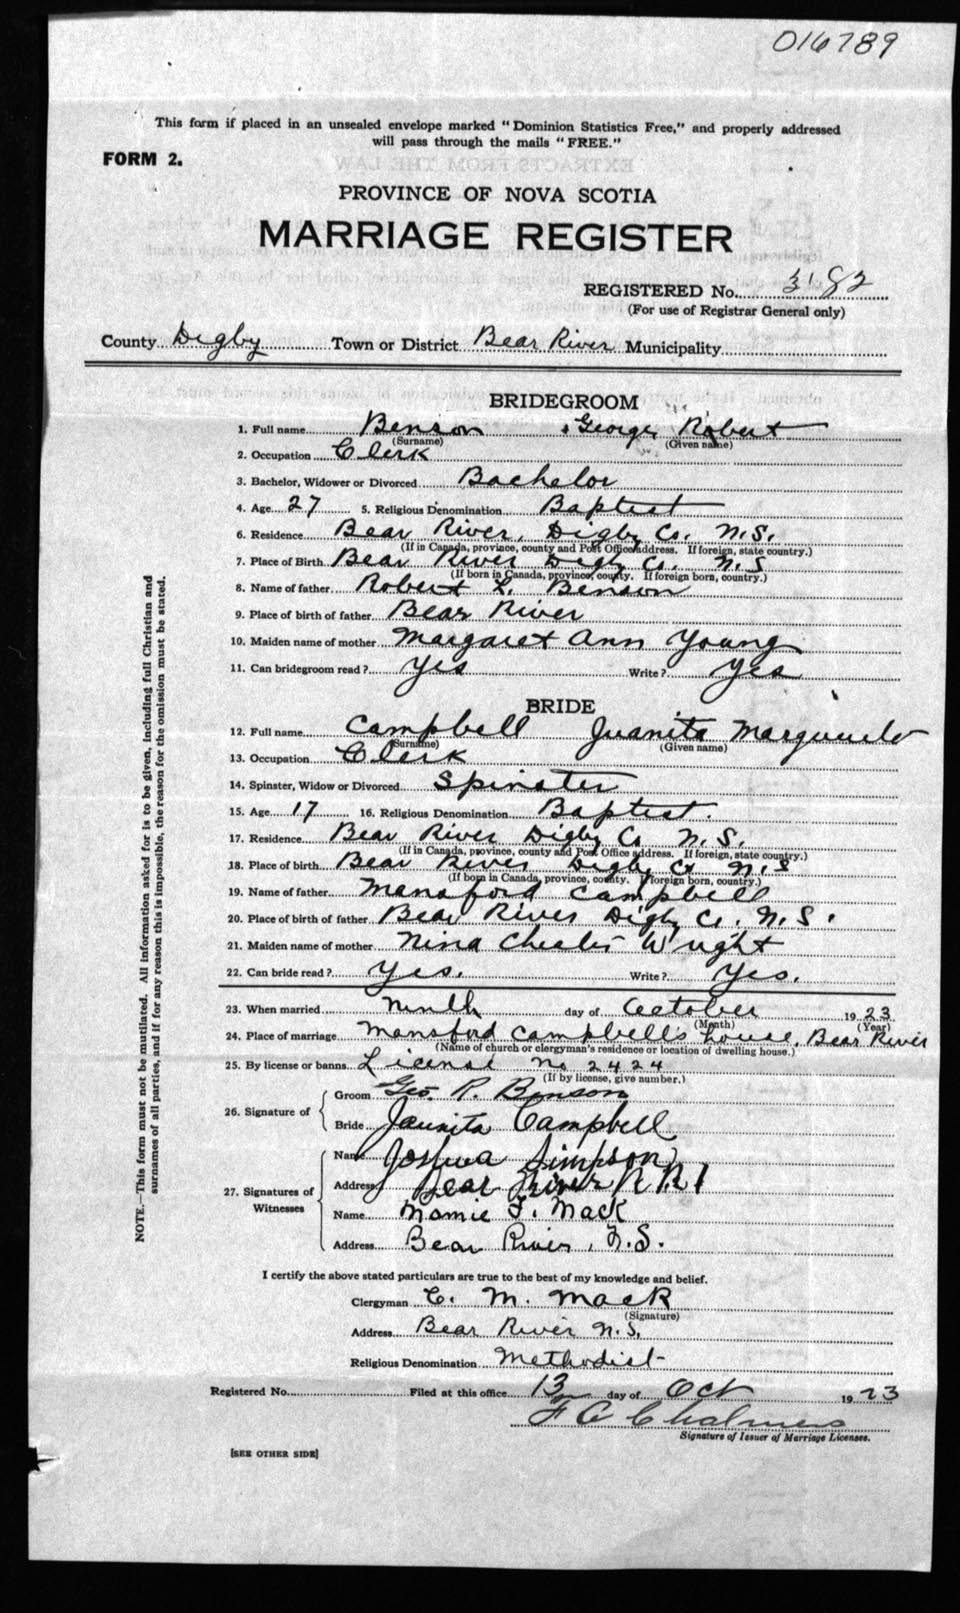 016789
This form if placed in an unsealed envelope marked "Dominion Statistics Free," and properly addressed
will pass through the mails "FREE."
FORM 2.
PROVINCE OF NOVA SCOTIA
MARRIAGE REGISTER
REGISTERED No. 3182
(For use of Registrar General only)
County Digby Town or District Bear River Municipality
BRIDEGROOM
1. Full name Benson George Robert
(Surname) (Given name)
2. Occupation Clerk
3. Bachelor, Widower or Divorced Bachelor
4. Age 27 5. Religious Denomination Baptist
6. Residence Bear River, Digby Co. N.S.
(If in Canada, province, county and Post Office address. If foreign, state country.)
7. Place of Birth Bear River Digby Co. N.S
(If born in Canada, province, county. If foreign born, country.)
8. Name of father Robert L. Benson
9. Place of birth of father Bear River
10. Maiden name of mother Margaret Ann Young
11. Can bridegroom read? Yes Write? Yes
BRIDE
12. Full name Campbell Juanita
(Surname) (Given name)
13. Occupation Clerk
14. Spinster, Widow or Divorced Spinster
15. Age 17 16. Religious Denomination Baptist.
17. Residence Bear River Digby Co N.S.
(If in Canada, province, county and Post Office address. If foreign, state country.)
18. Place of birth Bear River Digby Co N.S
(If born in Canada, province, county. If foreign born, country.)
19. Name of father Mansford Campbell
20. Place of birth of father Bear River Digby Co. N.S.
21. Maiden name of mother Nina Wright
22. Can bride read? Yes. Write? Yes.
23. When married Ninth day of October 1923
(Month) (Year)
24. Place of marriage Mansford Campbell's house, Bear River
(Name of church or clergyman's residence or location of dwelling house.)
25. By license or banns License No 2424
(If by license, give number.)
26. Signature of Groom Geo. R. Benson
Bride Jaunita Campbell
27. Signatures of Witnesses
Name Joshua Simpson
Address Bear River R R 1
Name Mamie F. Mack
Address Bear River, N.S.
I certify the above stated particulars are true to the best of my knowledge and belief.
Clergyman C. M. Mack
(Signature)
Address Bear River N.S.
Religious Denomination Methodist
Registered No. Filed at this office 13 day of Oct 1923
F A Chalmers
Signature of Issuer of Marriage Licenses.
[SEE OTHER SIDE]
NOTE.—This form must not be mutilated. All information asked for is to be given, including full Christian and
surnames of all parties, and if for any reason this is impossible, the reason for the omission must be stated.